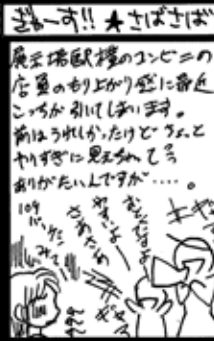 ぎゃーす!! ★さばさば
展示場駅横のコンビニの
店員のもり上がり感に最近
こっちが引いてしまいます。
前はうれしかったけど ちょっと
やりすぎに見えちゃって
ありがたいんですが……。
109
バッケン
みて
さあさあ
やすいよー